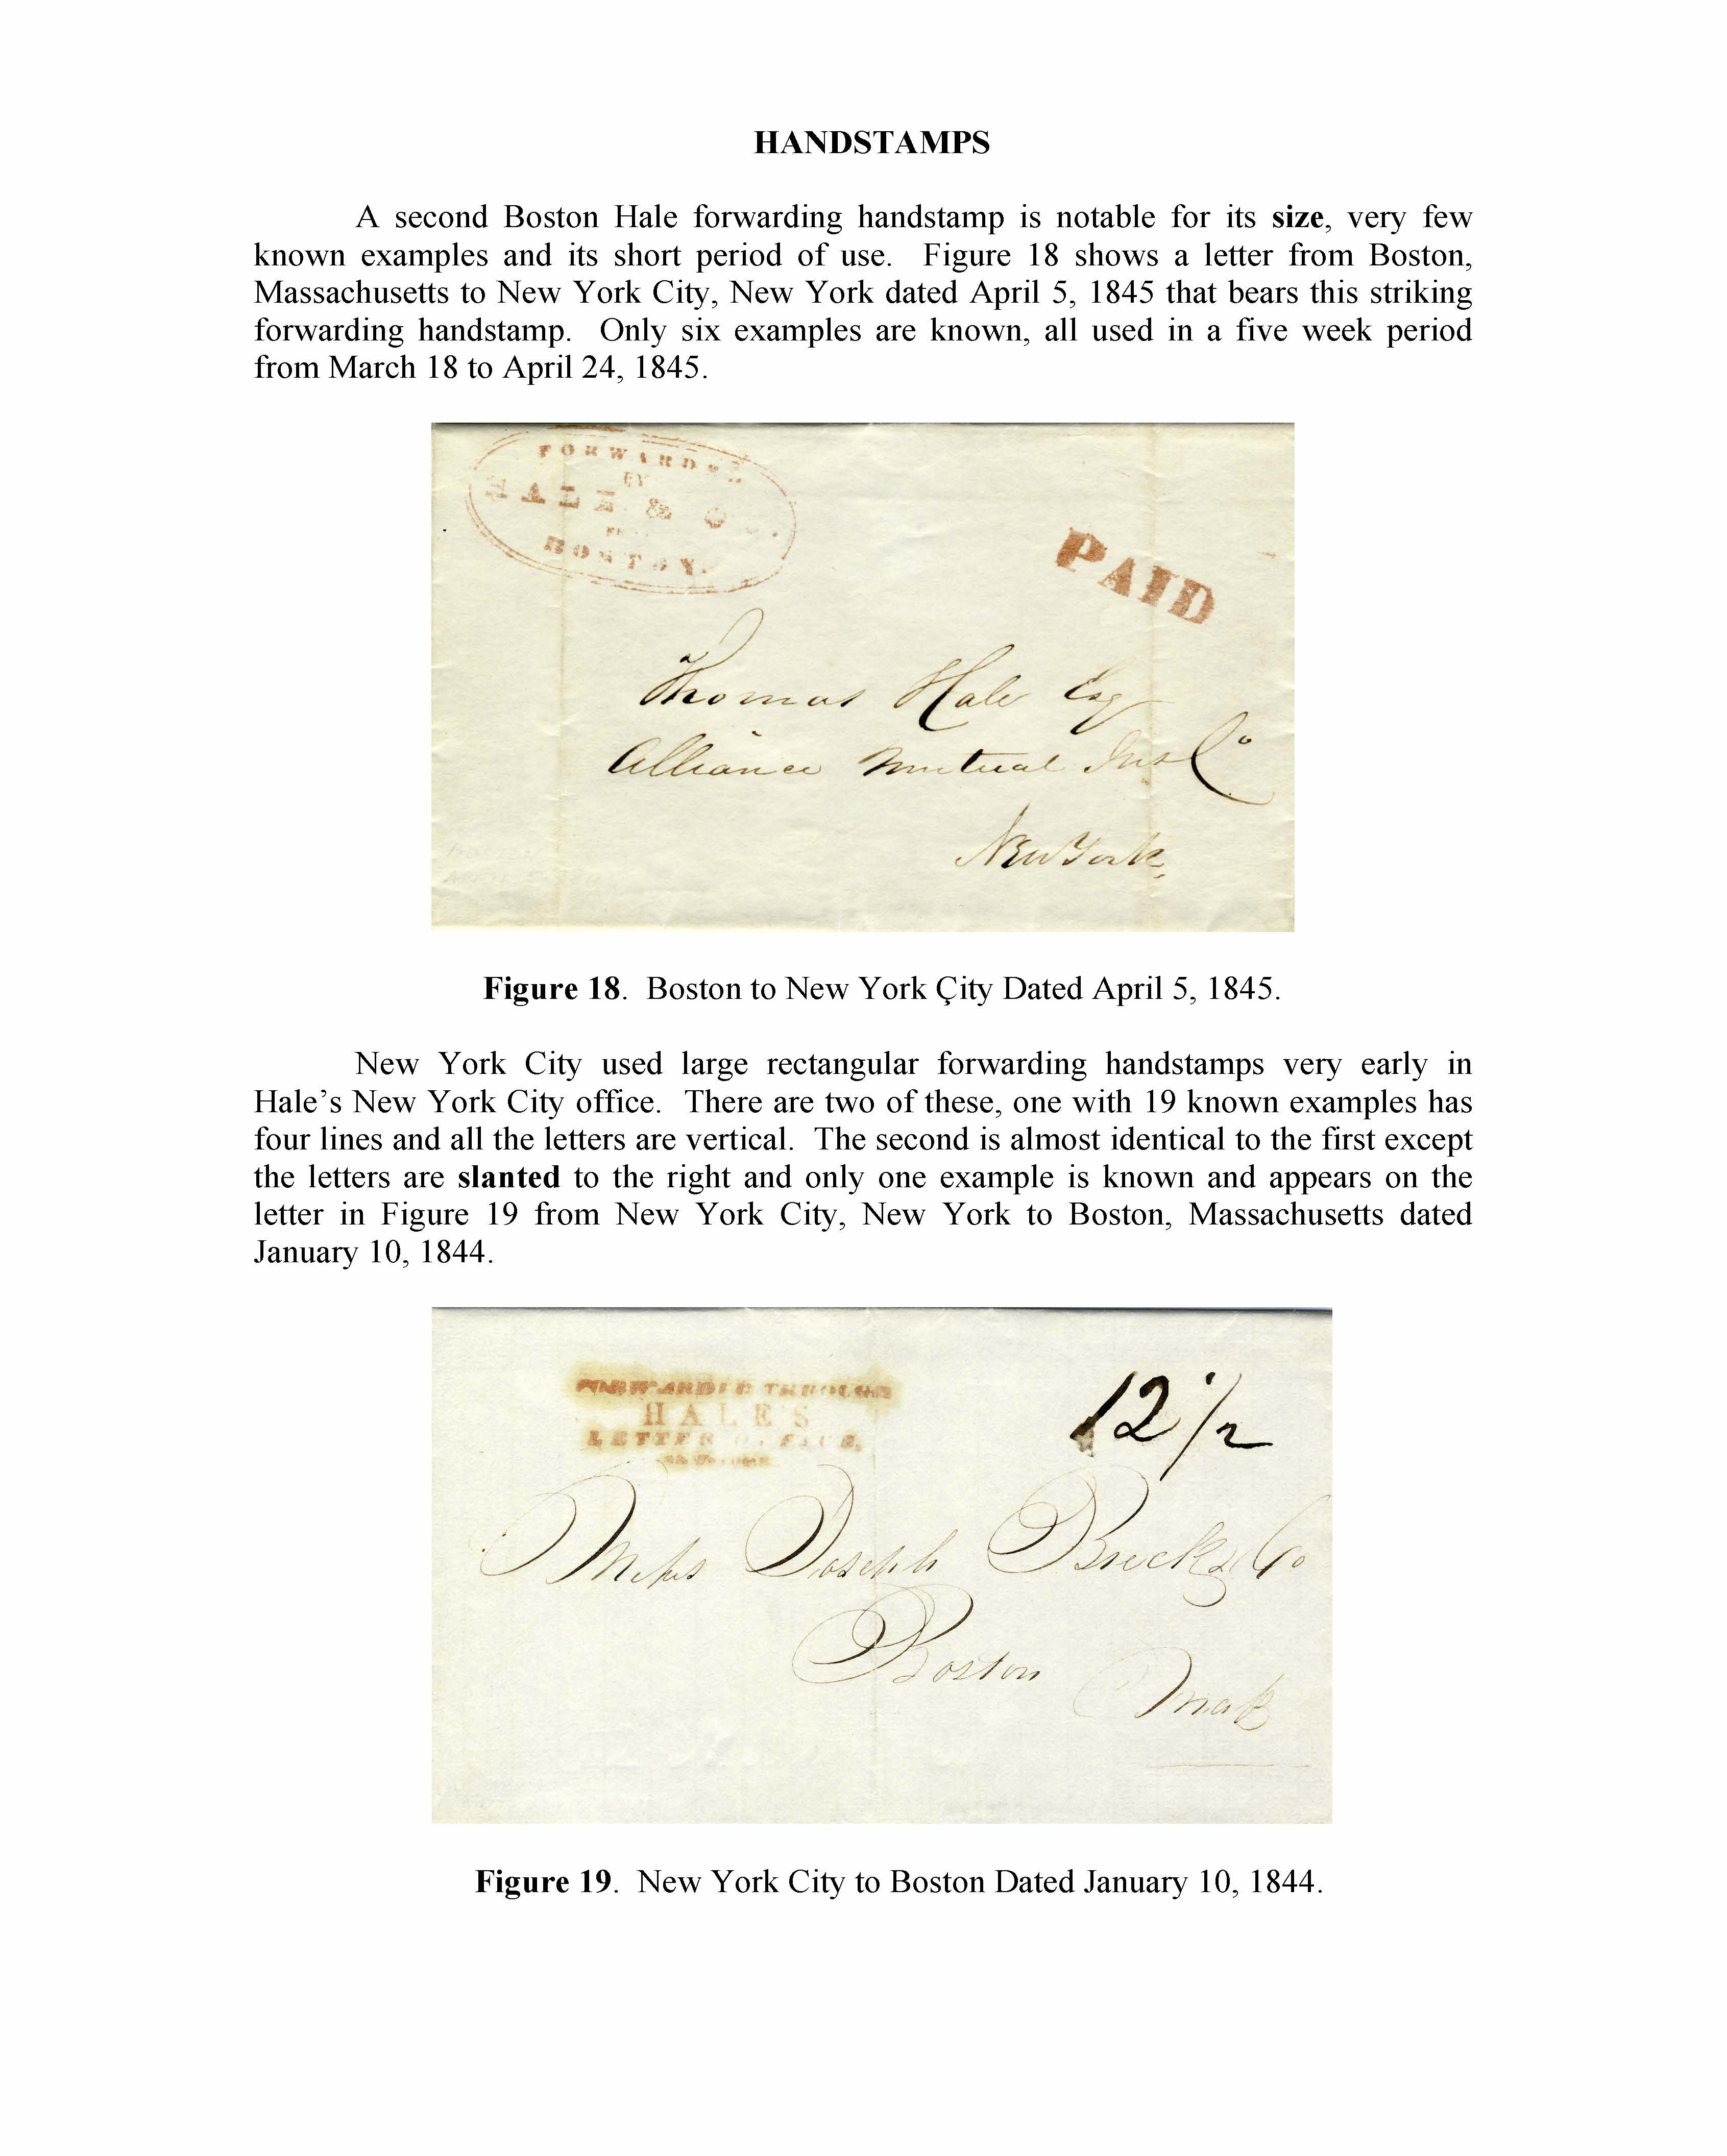 HANDSTAMPS
A second Boston Hale forwarding handstamp is notable for its size, very few
known examples and its short period of use. Figure 18 shows a letter from Boston,
Massachusetts to New York City, New York dated April 5, 1845 that bears this striking
forwarding handstamp. Only six examples are known, all used in a five week period
from March 18 to April 24, 1845.
FORWARDED
BY
HALE & CO.
BOSTON.
PAID
Thomas Hale Esq
Alliance Mutual Ins Co
New York
Figure 18. Boston to New York Çity Dated April 5, 1845.
New York City used large rectangular forwarding handstamps very early in
Hale’s New York City office. There are two of these, one with 19 known examples has
four lines and all the letters are vertical. The second is almost identical to the first except
the letters are slanted to the right and only one example is known and appears on the
letter in Figure 19 from New York City, New York to Boston, Massachusetts dated
January 10, 1844.
FORWARDED THROUGH
HALE'S
LETTER OFFICE,
12 1/2
Joseph Breck & Co
Boston
Figure 19. New York City to Boston Dated January 10, 1844.